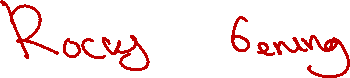 Rocky Gening